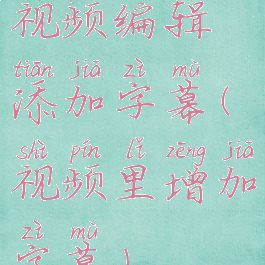 视频编辑
tiān jiā zì mù
添加字幕(
shì pín lǐ zēng jiā
视频里增加
zì mù
字幕)